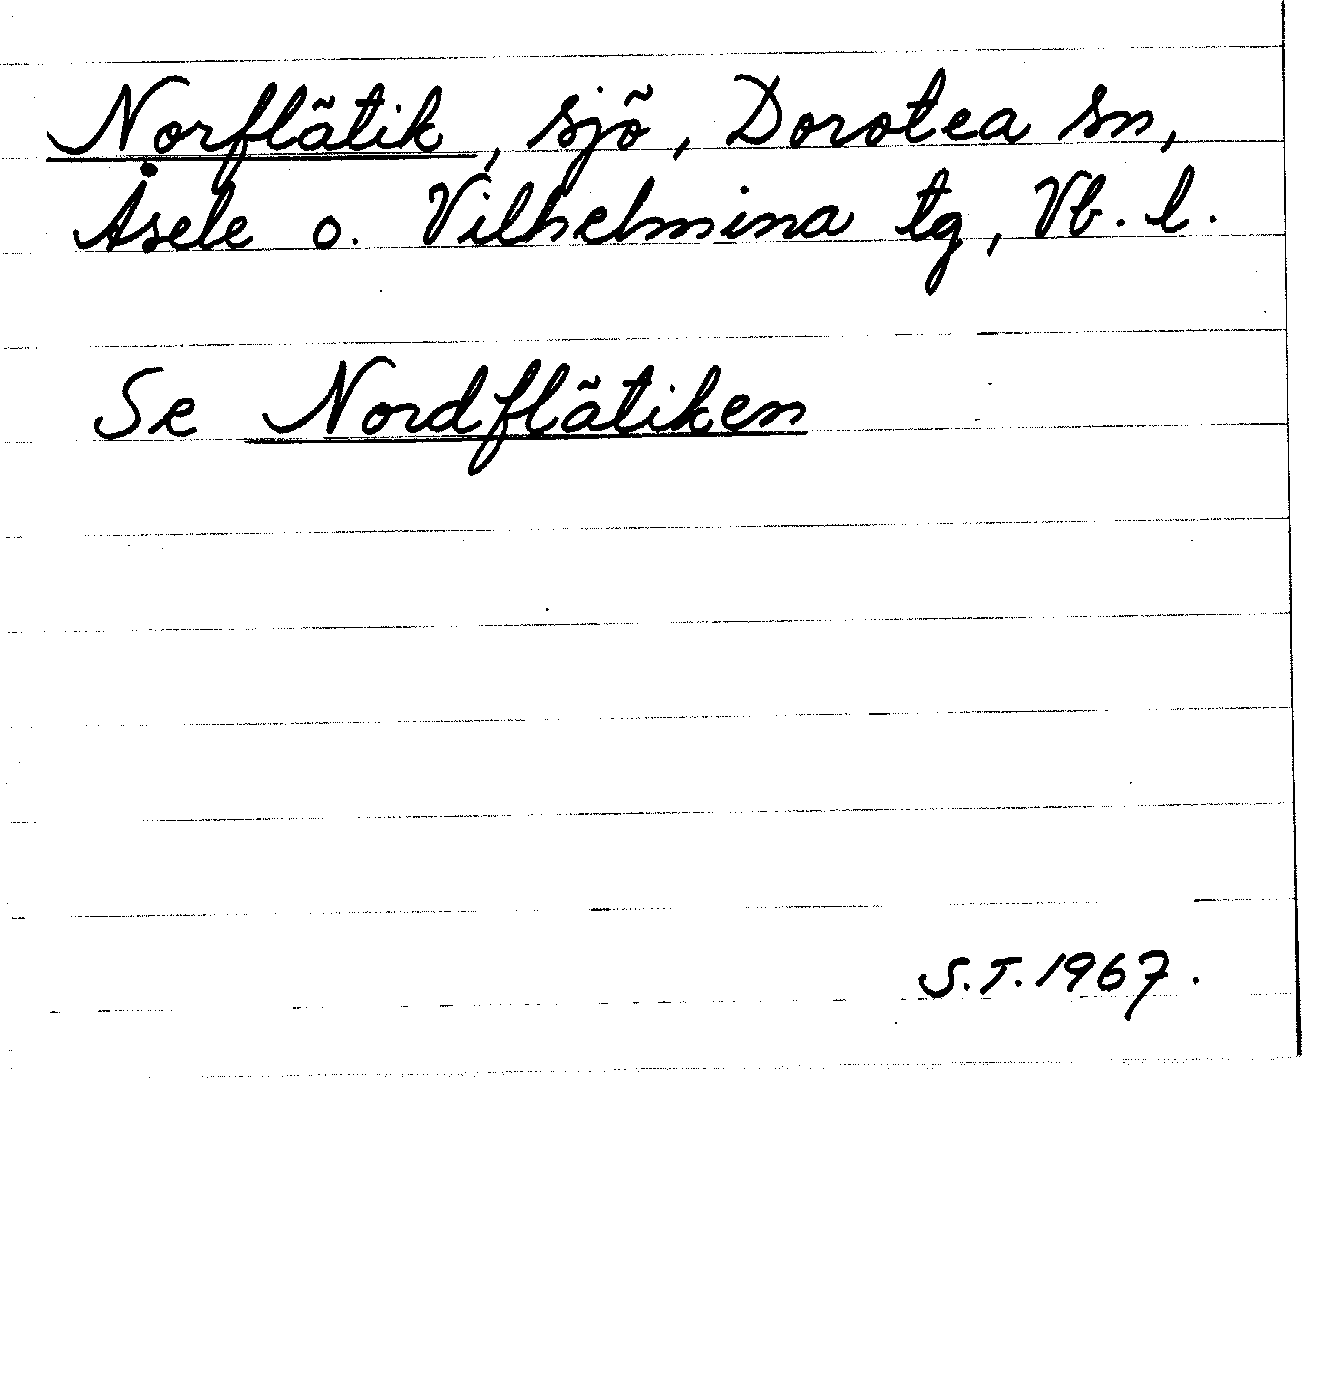 Norflätik, sjö, Dorotea sn,
Åsele o. Vilhelmina tg, Vb. l.
Se Nordflätiken
S.T. 1967.